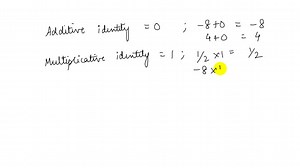 Additive identity = 0 ; -8+0 = -8
4+0 = 4
Multiplicative identity = 1 ; 1/2 x1 = 1/2
-8 x1